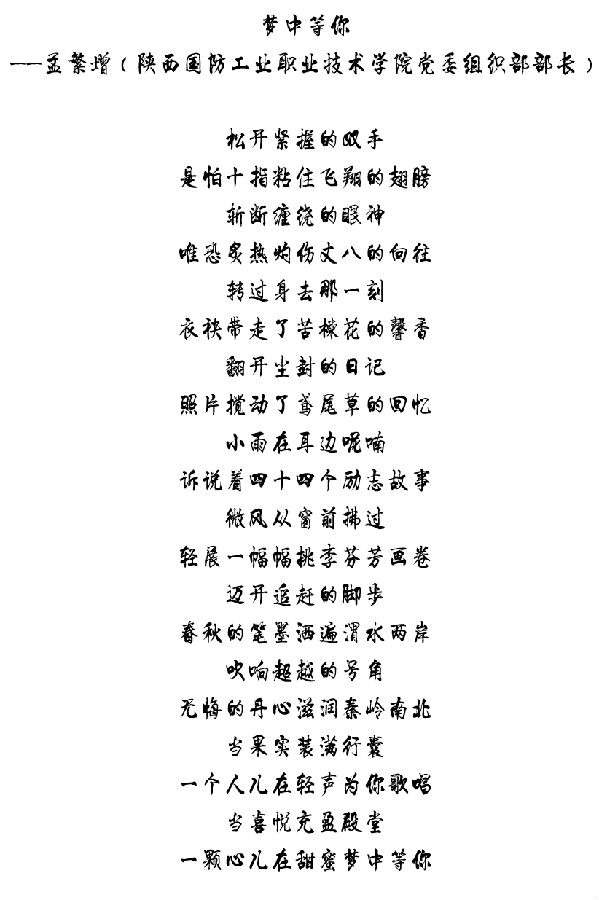 梦中等你
——孟繁增（陕西国防工业职业技术学院党委组织部部长）
松开紧握的双手
是怕十指粘住飞翔的翅膀
斩断缠绕的眼神
唯恐炙热灼伤丈八的向往
转过身去那一刻
衣袂带走了苦楝花的馨香
翻开尘封的日记
照片搅动了鸢尾草的回忆
小雨在耳边呢喃
诉说着四十四个励志故事
微风从窗前拂过
轻展一幅幅桃李芬芳画卷
迈开追赶的脚步
春秋的笔墨洒遍渭水两岸
吹响超越的号角
无悔的丹心滋润秦岭南北
当果实装满行囊
一个人儿在轻声为你歌唱
当喜悦充盈殿堂
一颗心儿在甜蜜梦中等你